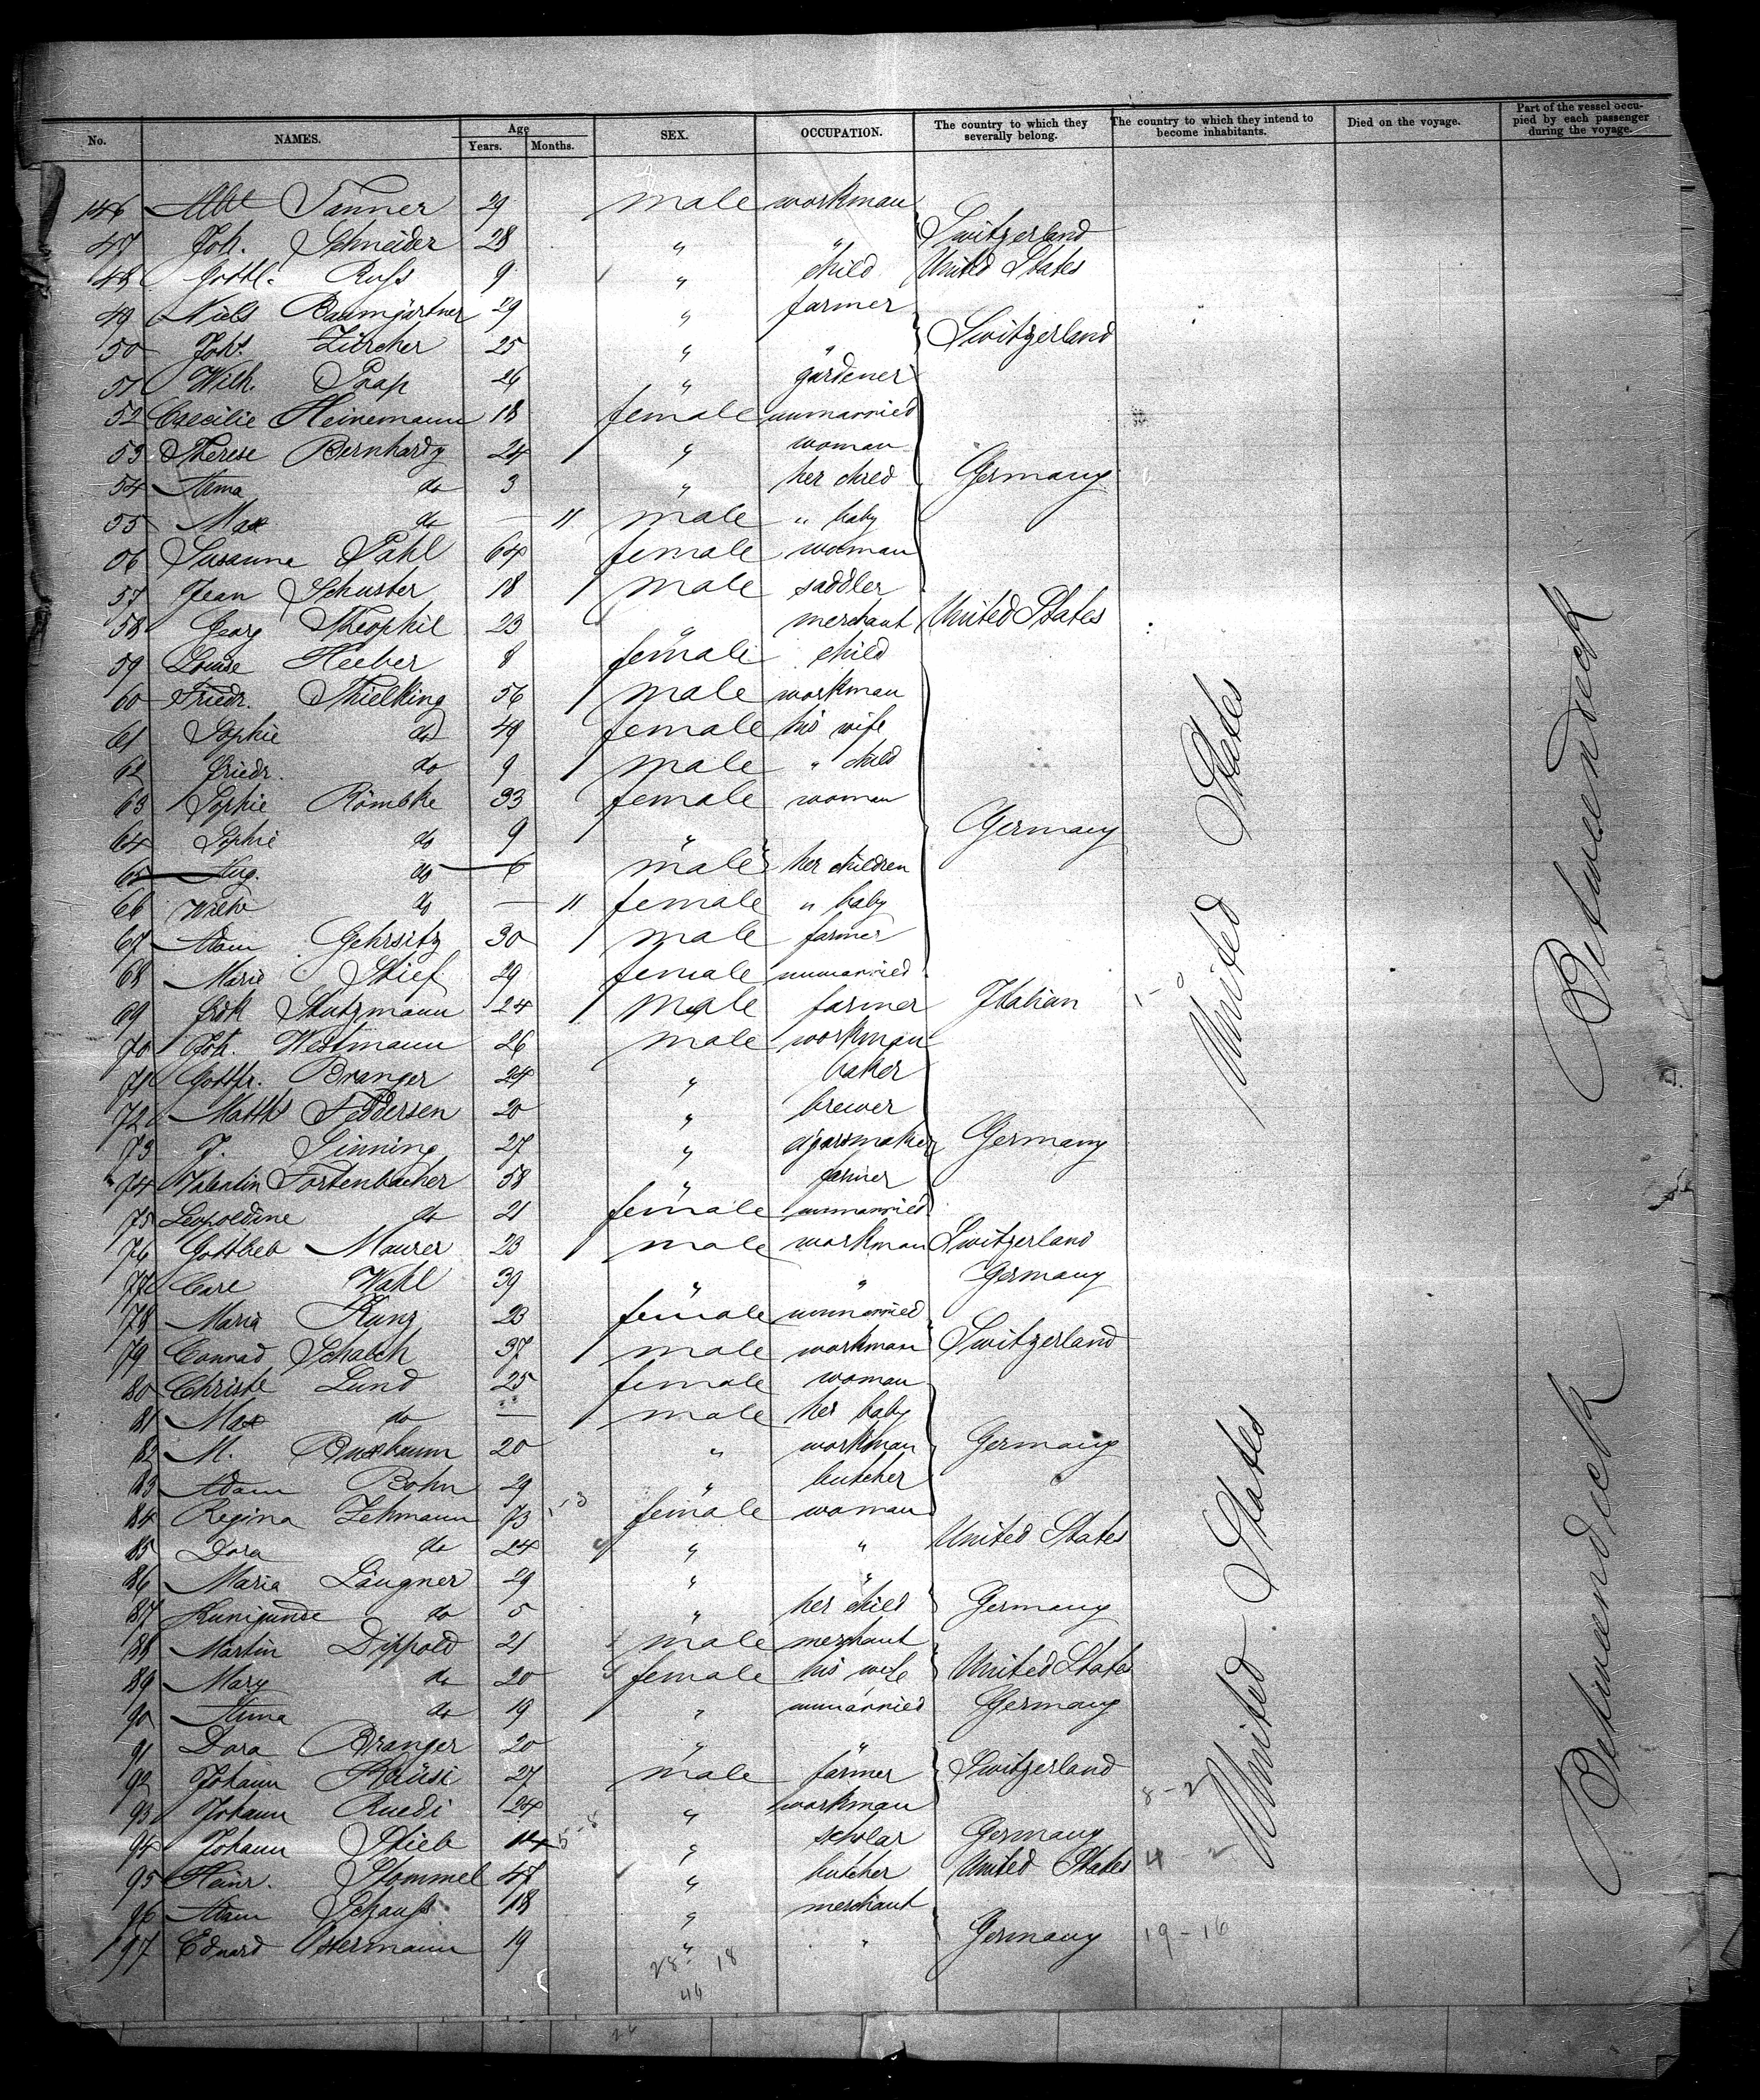 No. NAMES. Age Years. Months. SEX. OCCUPATION. The country to which they severally belong. The country to which they intend to become inhabitants. Died on the voyage. Part of the vessel occupied by each passenger during the voyage.
146 Tanner 29 male workman
47 Joh. Schneider 28 " " Switzerland
48 Gottl. Ruß 9 " child United States
49 Niels Baumgärtner 29 " farmer
50 Joh. Zürcher 25 " " Switzerland
51 Wilh. Paap 26 " gardener
52 Caecilie Heinemann 18 female unmarried
53 Therese Bernhardy 24 " woman
54 Anna do 3 " her child Germany
55 Max do — 11 male " baby
56 Susanne Pahl 64 female woman
57 Jean Schuster 18 male saddler
58 Georg Theophil 23 " merchant United States
59 Louise Heeber 8 female child
60 Friedr. Thielking 56 male workman
61 Sophie do 49 female his wife
62 Friedr. do 9 male " child
63 Sophie Römbke 33 female woman
64 Sophie do 9 " Germany
65 Aug. do 6 male her children
66 Wilhe do — 11 female " baby
67 Adam Gehrsitz 30 male farmer
68 Marie Stief 29 female unmarried
69 Stutzmann 24 male farmer Italian
70 Joh. Westmann 26 male workman
71 Gottfr. Branger 24 " baker
72 Matth Feddersen 20 " brewer
73 J. Sinning 27 " cigarsmaker Germany
74 Valentin Fortenbacher 58 " farmer
75 Leopoldine do 21 female unmarried
76 Gottlieb Maurer 23 male workman Switzerland
77 Carl Wahl 39 " " Germany
78 Maria Kunz 23 female unmarried
79 Conrad Schalch 37 male workman Switzerland
80 Christe Lund 25 female woman
81 Max do — male her baby
82 M. Buxbaum 20 " workman Germany
83 Adam Bohn 29 " butcher
84 Regina Lehmann 73 female woman
85 Dora do 24 " " United States
86 Maria Längner 29 " "
87 Kunigunde do 5 " her child Germany
88 Martin Dippold 21 male merchant
89 Mary do 20 female his wife United States
90 Anna do 19 " unmarried Germany
91 Dora Branger 20 " "
92 Johann Kräusi 27 male farmer Switzerland
93 Johann Ruedi 24 " workman 8-2
94 Johann Stieb 14 " scholar Germany
95 Heinr. Stommel 47 " butcher United States 4-2
96 Adam Schauß 18 " merchant
197 Eduard Ostermann 19 " " Germany 19-16
28 18
46
United States
United States
Betweendeck
Betweendeck